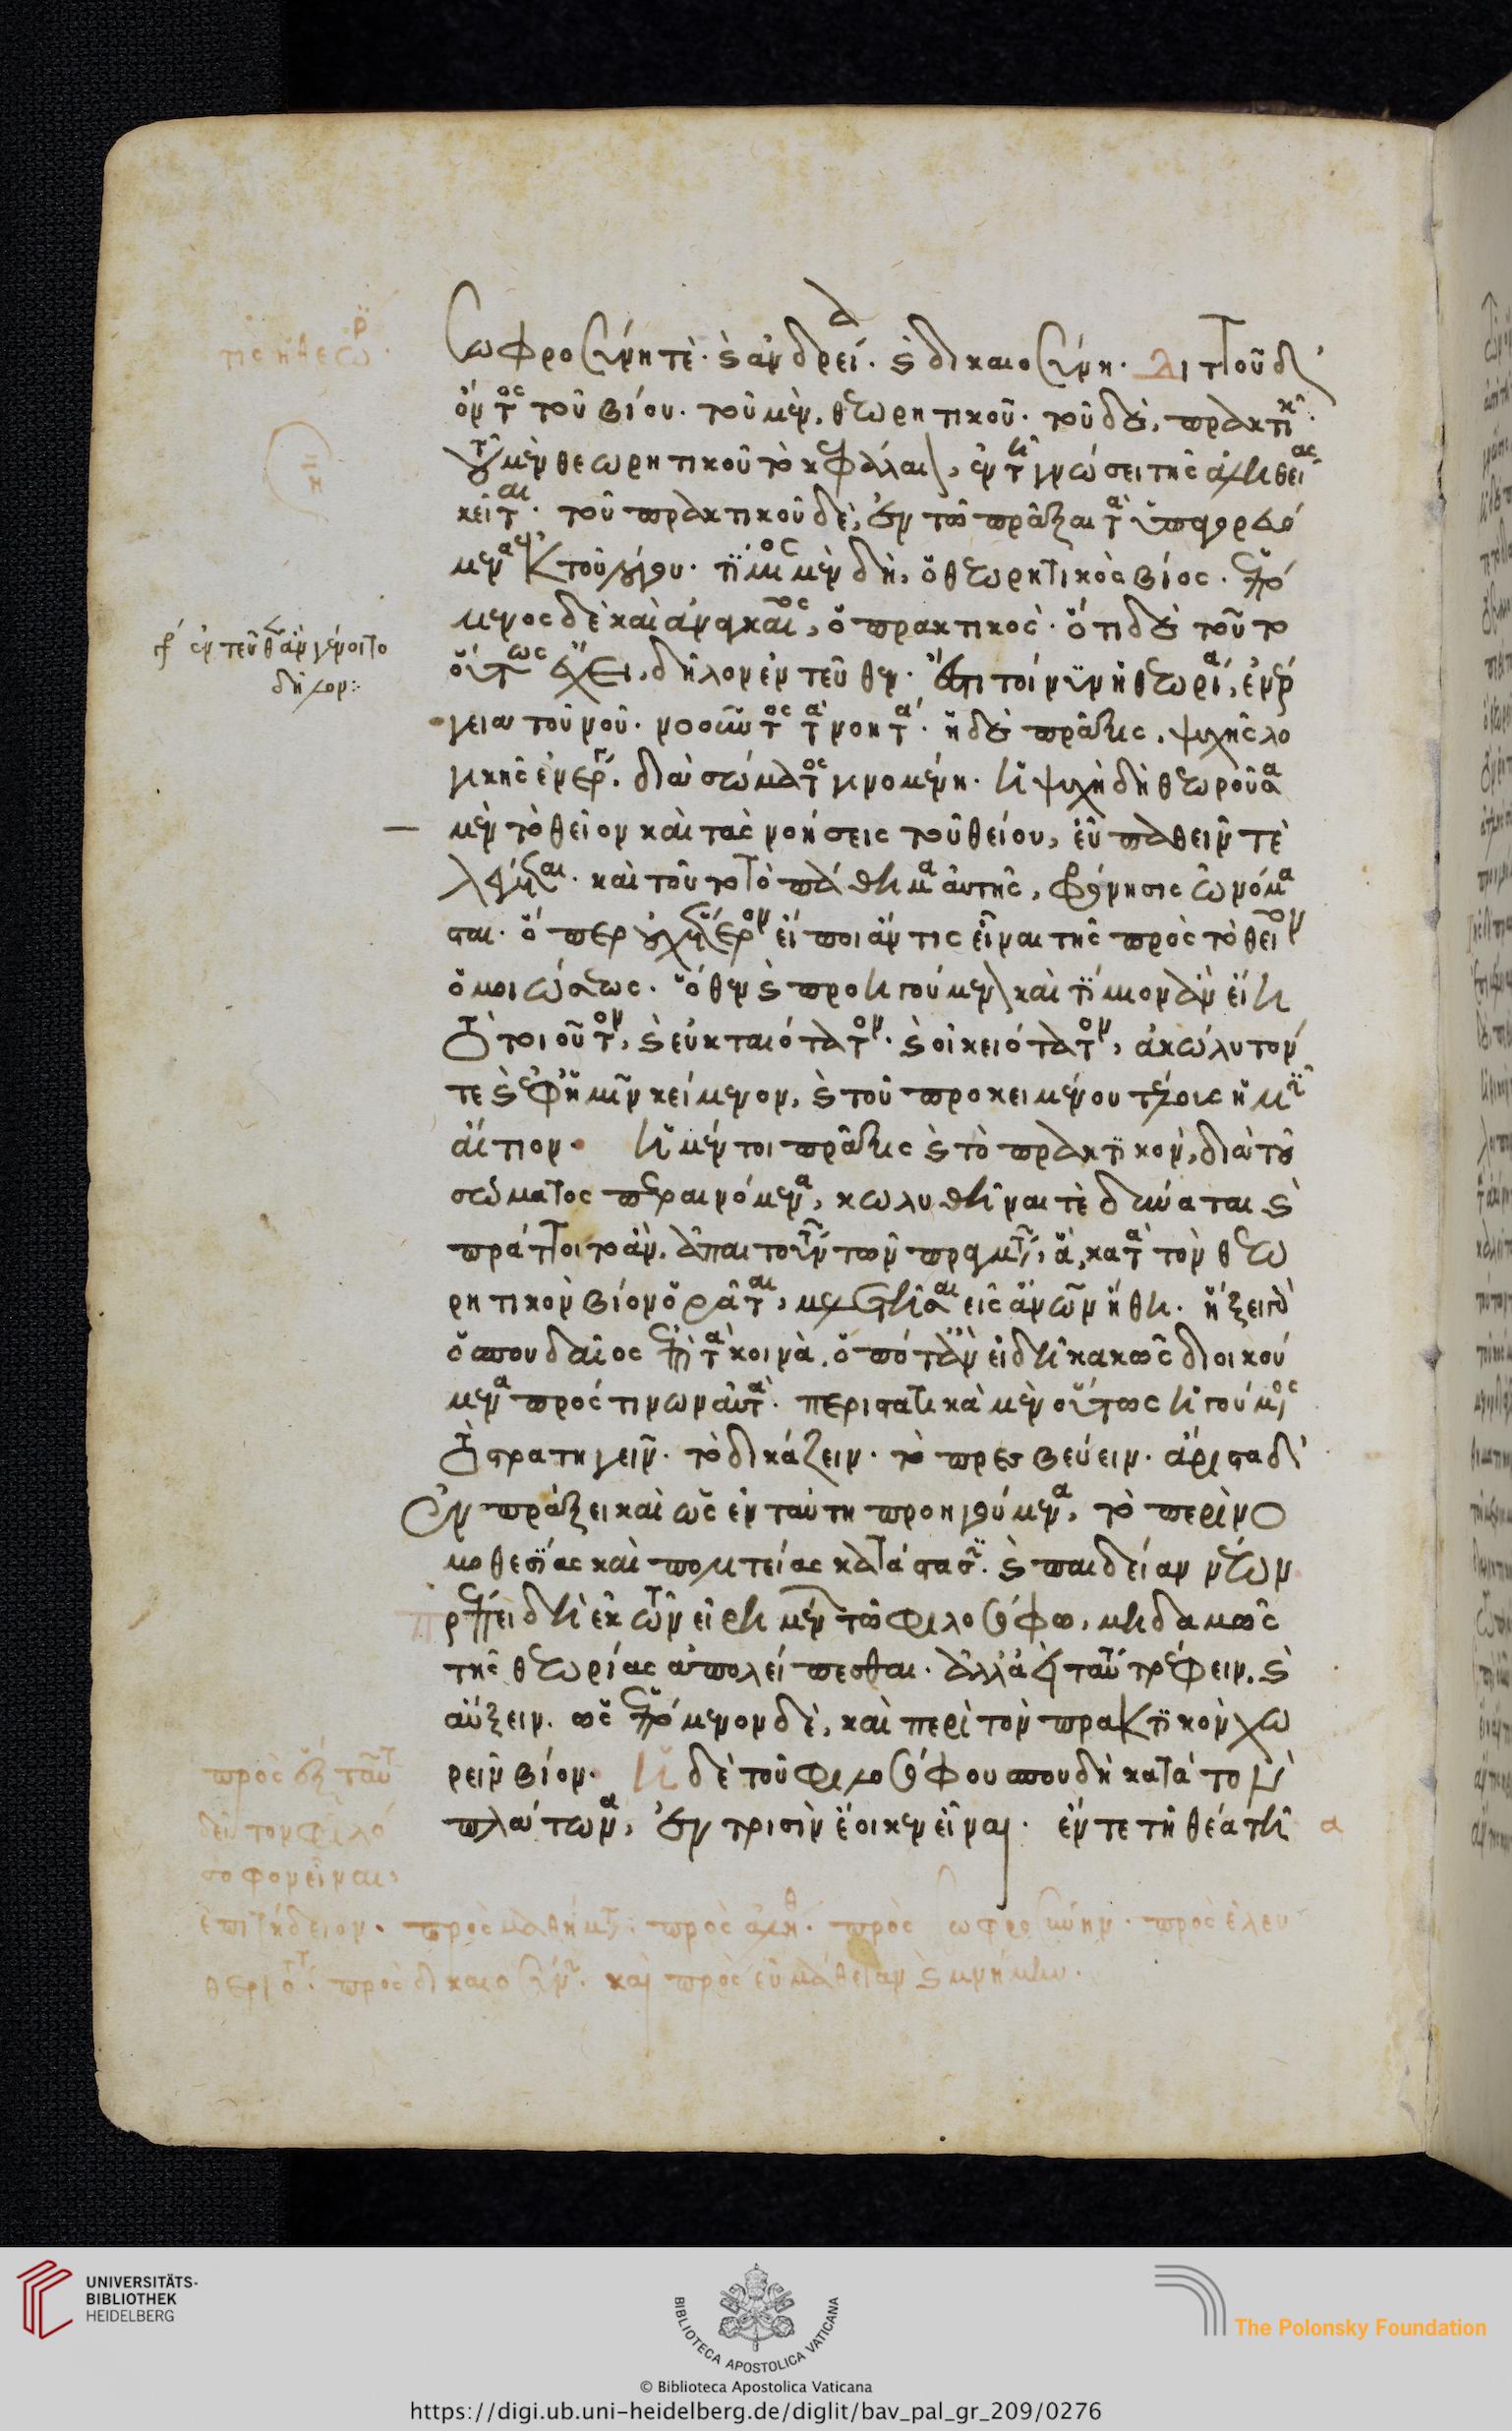 σωφροσύνη τὲ· καὶ ἀνδρεία· καὶ δικαιοσύνη· Διττοῦ δ'
ὄντος τοῦ βίου· τοῦ μὲν, θεωρητικοῦ· τοῦ δὲ, πρακτικοῦ·
τοῦ μὲν θεωρητικοῦ τὸ κεφάλαιον, ἐν τῆ γνώσει τῆς ἀληθείας
κεῖται· τοῦ πρακτικοῦ δὲ, ἐν τῶ πρᾶξαι τὰ ὑπαγορευό
μενα ἐκ τοῦ λόγου· τίμιος μὲν δὴ, ὁ θεωρητικὸς βίος· ἑπό
μενος δὲ καὶ ἀναγκαῖος, ὁ πρακτικός· ὅτι δὲ τοῦτο
οὕτως ἔχει, δῆλον ἐντεῦθεν· ἔστι τοίνυν ἡ θεωρία, ἐνέρ
γεια τοῦ νοῦ· νοοῦντος τὰ νοητά· ἡ δὲ πρᾶξις, ψυχῆς λο
γικῆς ἐνέργεια, διὰ σώματος γινομένη· ἡ ψυχὴ δὴ θεωροῦσα
μὲν τὸ θεῖον καὶ τὰς νοήσεις τοῦ θείου, εὖ παθεῖν τὲ
λέγεται· καὶ τοῦτο τὸ πάθημα αὐτῆς, φρόνησις ὠνόμα
σται· ὅπερ οὐχ ἕτερον εἴποι ἄν τις εἶναι τῆς πρὸς τὸ θεῖον
ὁμοιώσεως· ὅθεν καὶ προηγούμενον καὶ τίμιον ἂν εἴη
τὸ τοιοῦτον, καὶ εὐκταιότατον· καὶ οἰκειότατον, ἀκώλυτόν
τε καὶ ἐφ' ἡμῖν κείμενον, καὶ τοῦ προκειμένου τέλους ἡμῖν
αἴτιον· ἡ μέντοι πρᾶξις καὶ τὸ πρακτικὸν, διὰ τοῦ
σώματος περαινόμενα, κωλυθῆναι τὲ δύναται καὶ
πράττοιτο ἂν, ἀπαιτούντων τῶν πραγμάτων, ἃ, κατὰ τὸν θεω
ρητικὸν βίον ὁρᾶται, μελετῆσαι εἰς ἀνθρώπων ἤθη· ἥξει γὰρ
ὁ σπουδαῖος ἐπὶ τὰ κοινὰ, ὁπόταν εἴδη κακῶς διοικού
μενα πρός τινων αὐτά· περιστατικὰ μὲν οὕτως ἡγούμενος
τὸ στρατηγεῖν· τὸ δικάζειν· τὸ πρεσβεύειν· ἄριστα δ'
ἐν πράξει καὶ ὡς ἐν ταύτη προηγούμενα, τὸ περὶ νο
μοθεσίας καὶ πολιτείας κατάστασιν· καὶ παιδείαν νέων·
Πρέπει δὴ ἐκ τῶν εἰρημένων τῶ φιλοσόφω, μηδαμῶς
τῆς θεωρίας ἀπολείπεσθαι· ἀλλ' ἀεὶ ταύτην τρέφειν, καὶ
αὔξειν. ὡς ἑπόμενον δὲ, καὶ περὶ τὸν πρακτικὸν χω
ρεῖν βίον· ἡ δὲ τοῦ φιλοσόφου σπουδὴ κατὰ τὸν
πλάτωνα, ἐν τρισὶν ἔοικεν εἶναι· ἔν τε τῆ θέα τῆ
ἐντεῦθεν ἂν γένοιτο
δῆλον:
πρὸς ταῦτα
δεῖ τὸν φιλό
σοφον εἶναι
ἐπιτήδειον· πρὸς μαθήματα· πρὸς ἀλήθειαν· πρὸς σωφροσύνην· πρὸς ἐλευ
θεριότητα· πρὸς δικαιοσύνην· καὶ πρὸς εὐμάθειαν καὶ μνήμην·
UNIVERSITÄTS-
BIBLIOTHEK
HEIDELBERG
BIBLIOTECA APOSTOLICA VATICANA
The Polonsky Foundation
© Biblioteca Apostolica Vaticana
https://digi.ub.uni-heidelberg.de/diglit/bav_pal_gr_209/0276